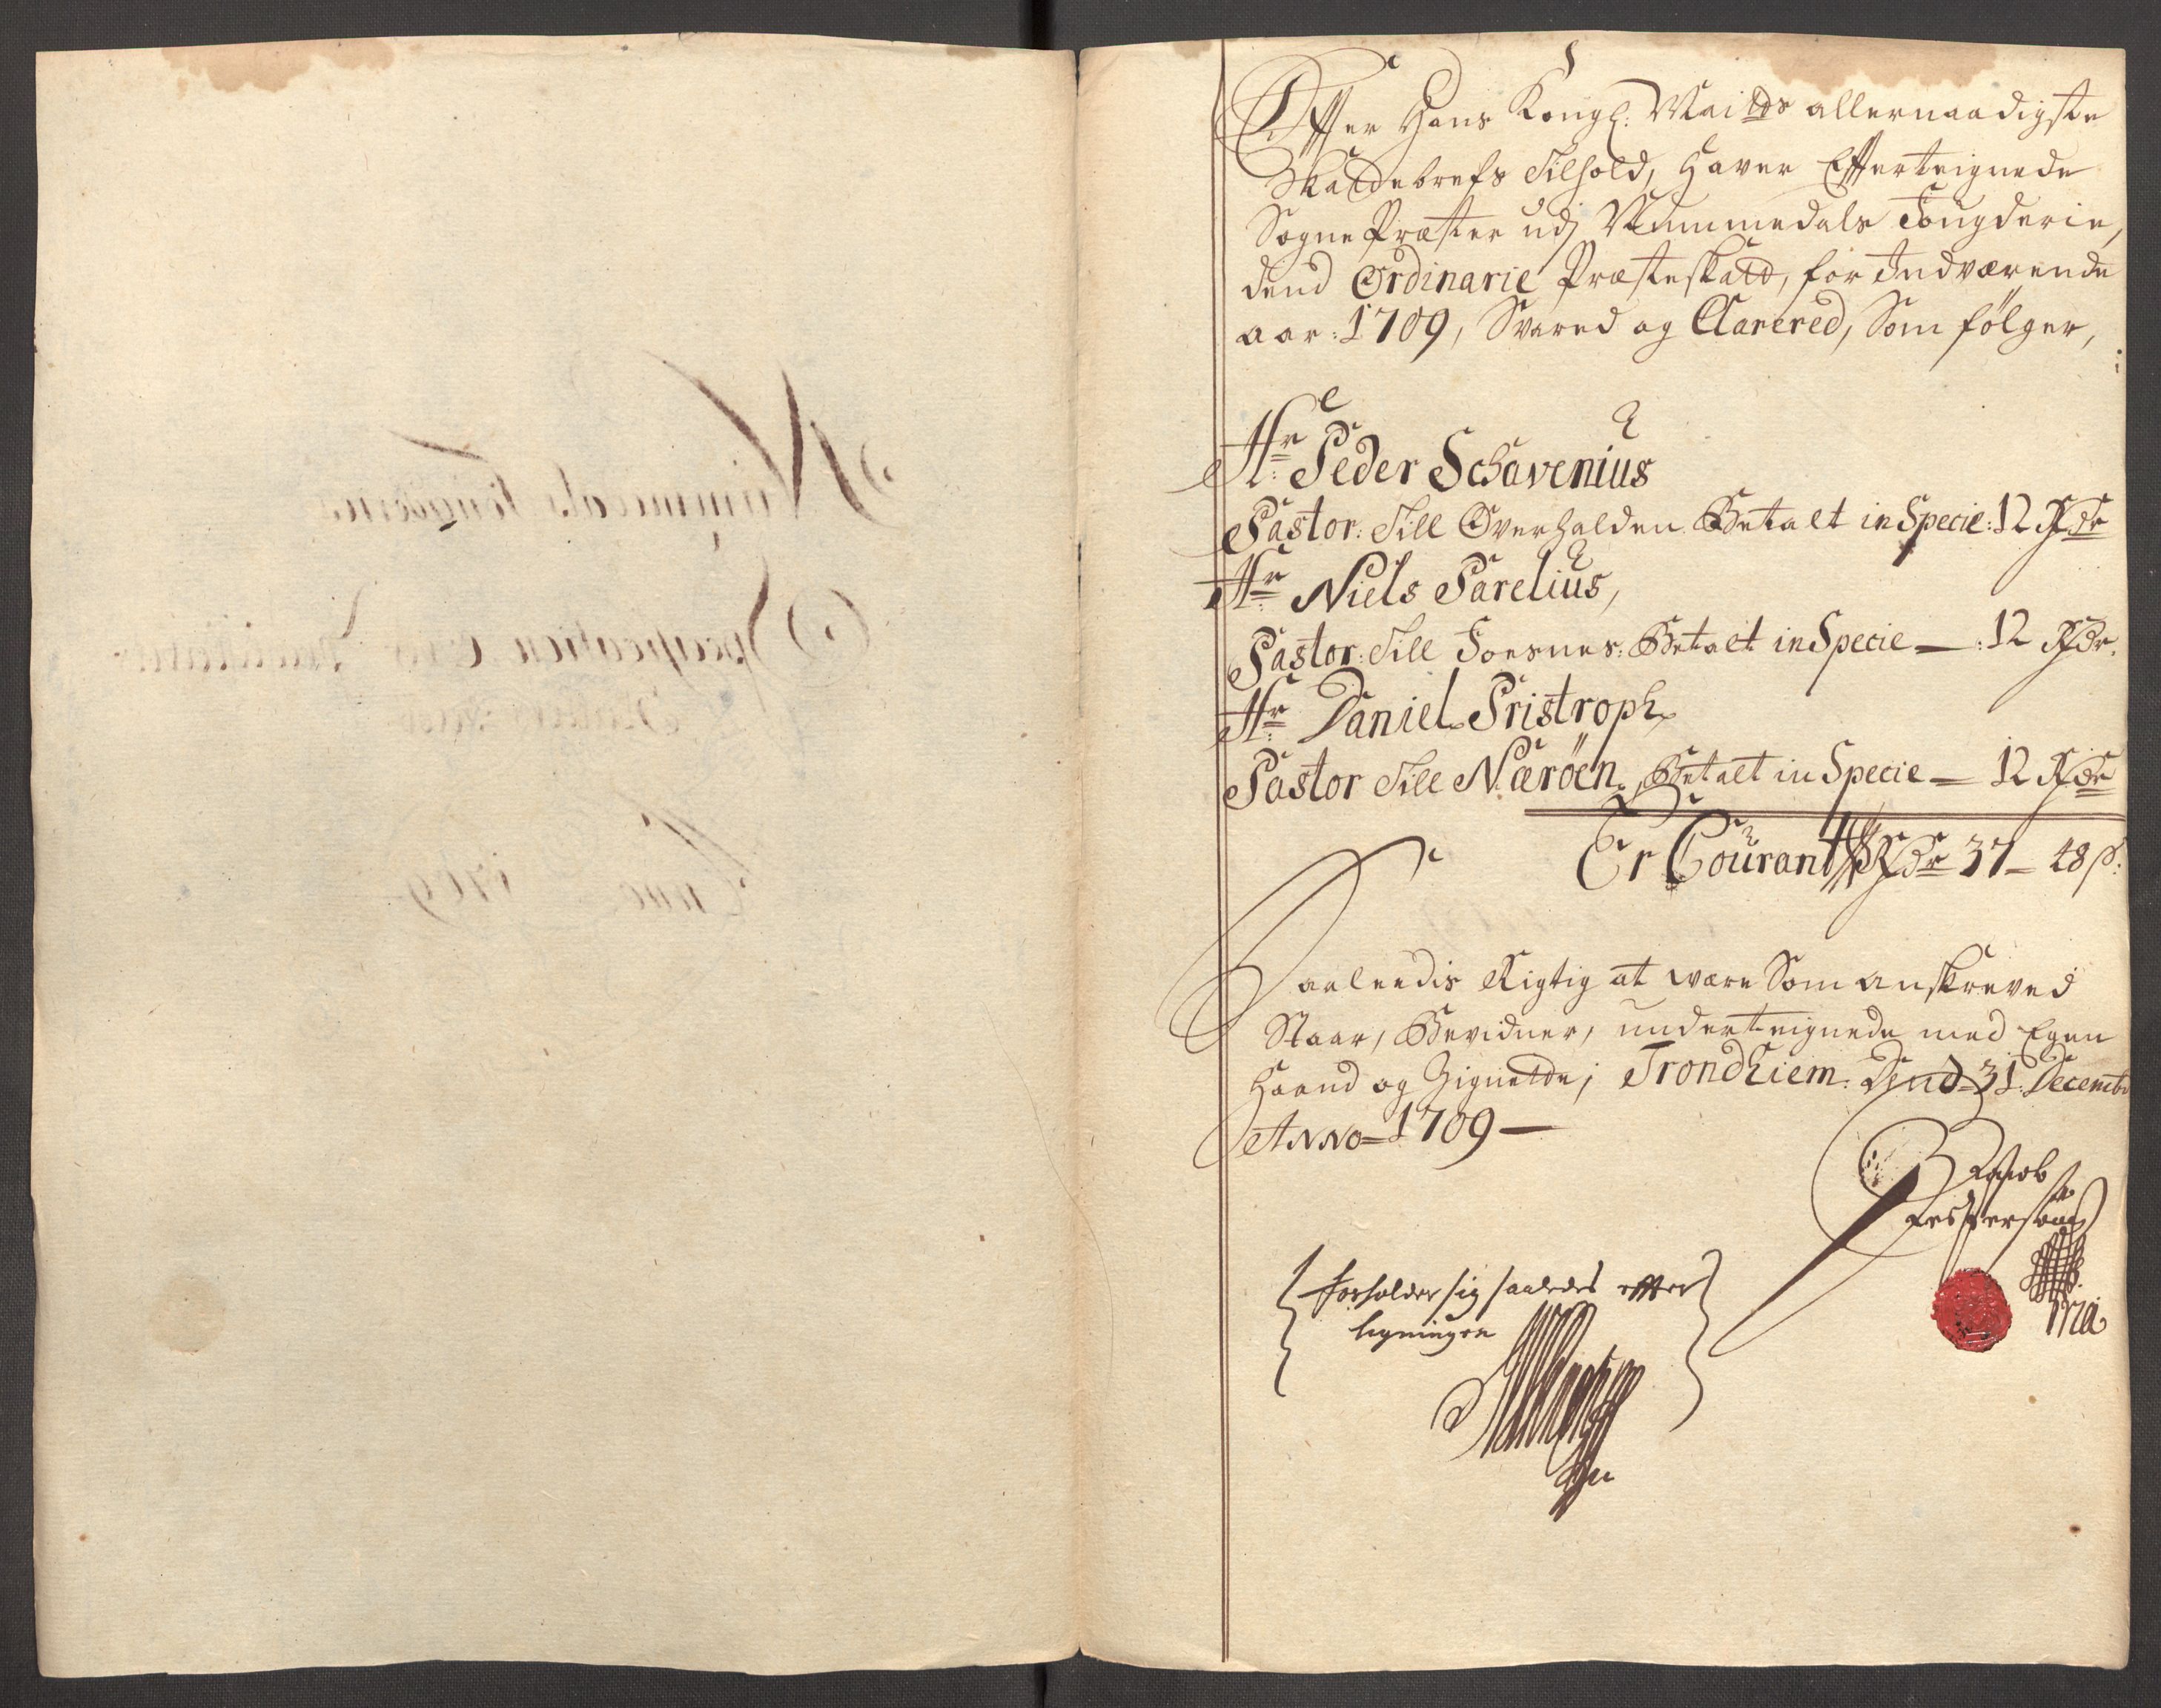 Effter Hans Kongl: Maitds allernaadigste
Skattebrefs Tilhold, Haver Efferteignede
Sogne Præster udj Nummedals Fougderie,
dend Ordinarie Præsteskatt, for Indværende
aar: 1709, Svared og Clarered, Som følger,
Hr: Peder Schavenius
Pastor: Till Overhalden Betalt in Specie: 12 Rdr
Hr: Niels Parelius,
Pastor: Till Foesnes: Betalt in Specie — : 12 Rdr.
Hr: Daniel Pristroph
Pastor Till Nærøen, Betalt in Specie — 12 Rdr
Er Courant Rdr 37 — 48 s:
Saaleedis Rigtig at være Som anskreved
Staar, Bevidner, underteignede med Egen
Haand og Zignette, Trondhiem. Dend 31: Decembr
Anno 1709 —
Forholder sig saaledes effter
ligningen